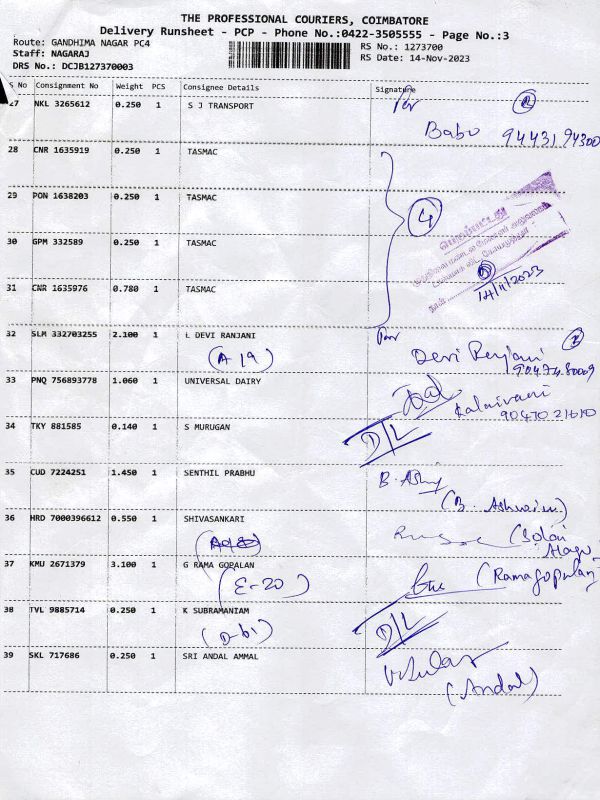 THE PROFESSIONAL COURIERS, COIMBATORE
Delivery Runsheet - PCP - Phone No.:0422-3505555 - Page No.:3
Route: GANDHIMA NAGAR PC4 RS No.: 1273700
Staff: NAGARAJ RS Date: 14-Nov-2023
DRS No.: DCJB127370003
S No Consignment No Weight PCS Consignee Details Signature
27 NKL 3265612 0.250 1 S J TRANSPORT
Babu 9443194300
28 CNR 1635919 0.250 1 TASMAC
29 PON 1638203 0.250 1 TASMAC
4
30 GPM 332589 0.250 1 TASMAC
31 CNR 1635976 0.780 1 TASMAC
14/11/2023
32 SLM 332703255 2.100 1 L DEVI RANJANI
(A 19) Devi Renjani
9047480009
33 PNQ 756893778 1.060 1 UNIVERSAL DAIRY
Kalaivani
9047021610
34 TKY 881585 0.140 1 S MURUGAN
D/L
35 CUD 7224251 1.450 1 SENTHIL PRABHU
(B. Ashwini)
36 HRD 7000396612 0.550 1 SHIVASANKARI
(Solai
37 KMU 2671379 3.100 1 G RAMA GOPALAN
(E-20) (Ramagopulan)
38 TVL 9885714 0.250 1 K SUBRAMANIAM
(D-61) D/L
39 SKL 717686 0.250 1 SRI ANDAL AMMAL
(Andal)